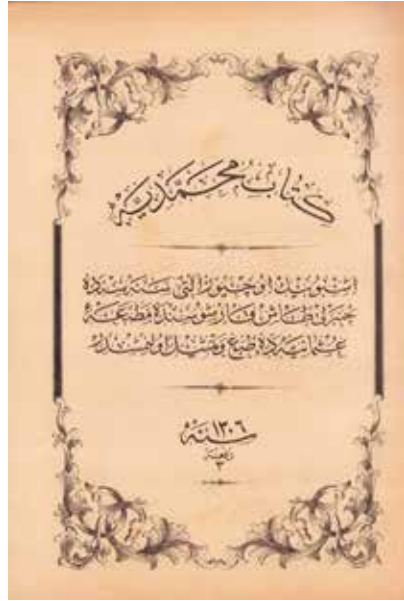 كتاب محمديه
اشبو بيك اوچيوز التى سنه سنده
چنبرلى طاش قارشوسنده مطبعهٔ
عثمانيه ده طبع وتمثيل اولنمشدر
سنه ١٣٠٦